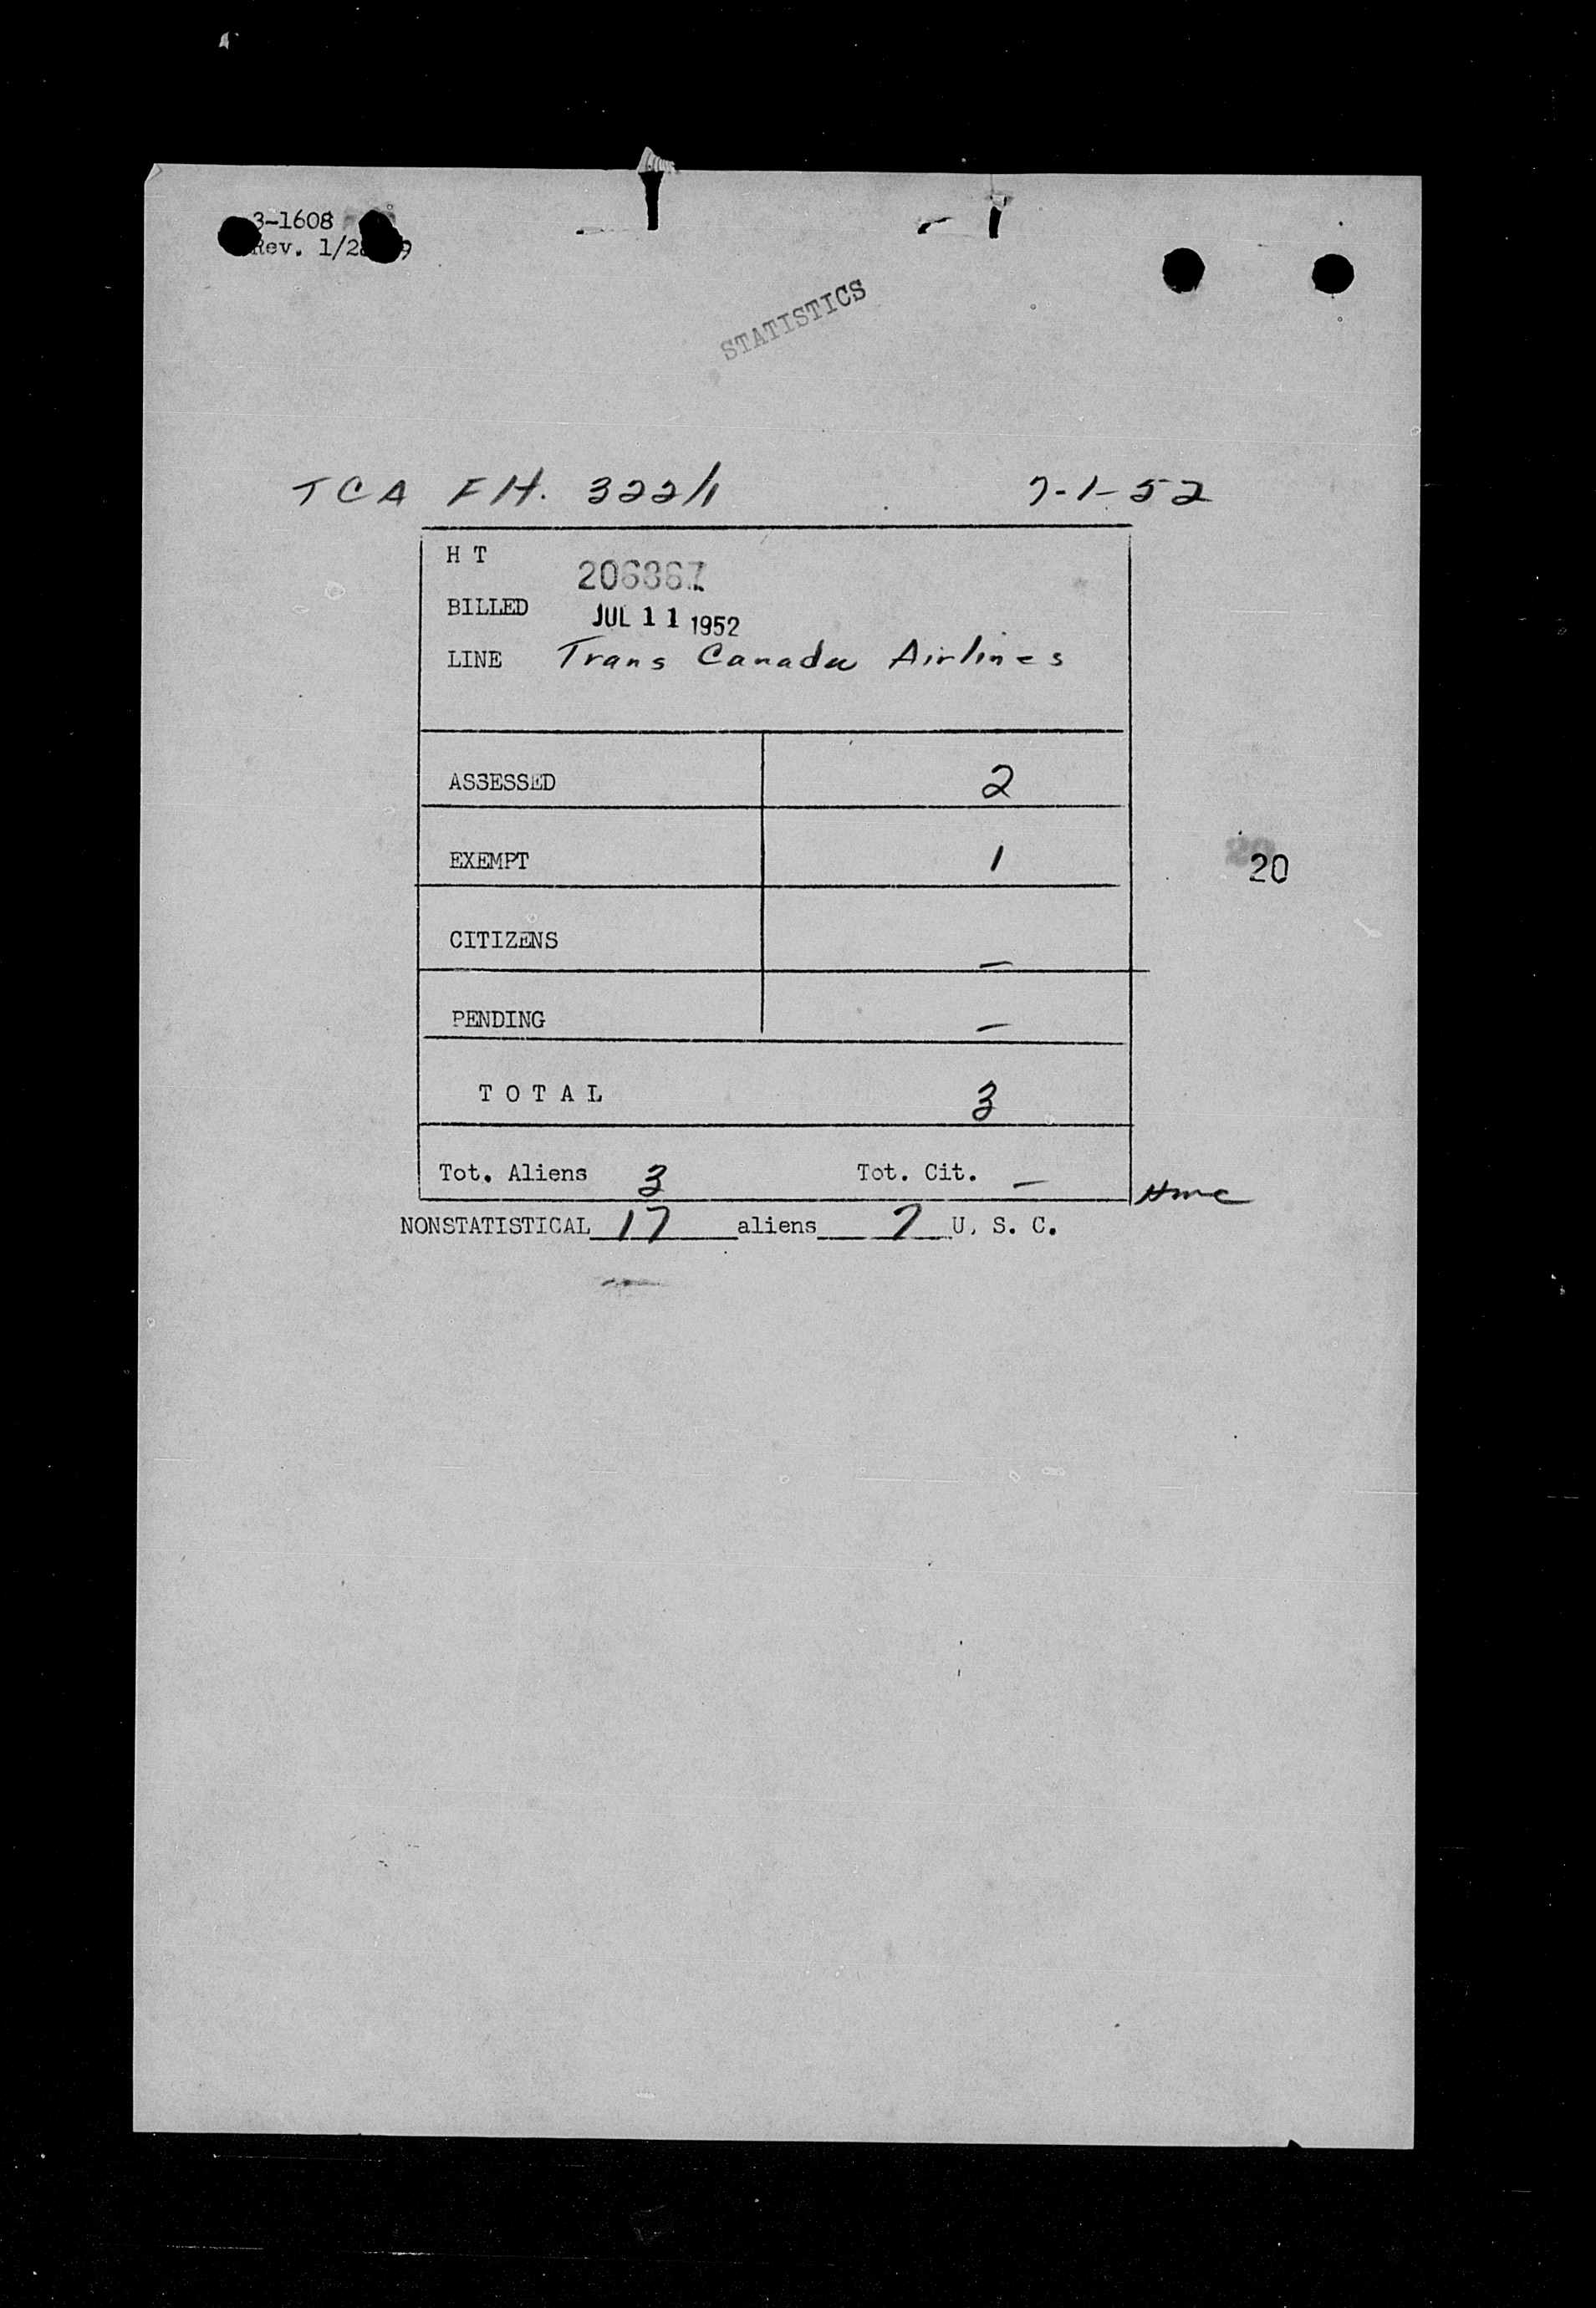 3-1608
Rev. 1/2
STATISTICS
TCA Flt. 322/1 7-1-52
H T
BILLED JUL 11 1952
LINE Trans Canada Airlines
ASSESSED 2
EXEMPT 1
20
CITIZENS —
PENDING —
T O T A L 3
Tot. Aliens 3 Tot. Cit. —
NONSTATISTICAL 17 aliens 7 U. S. C.